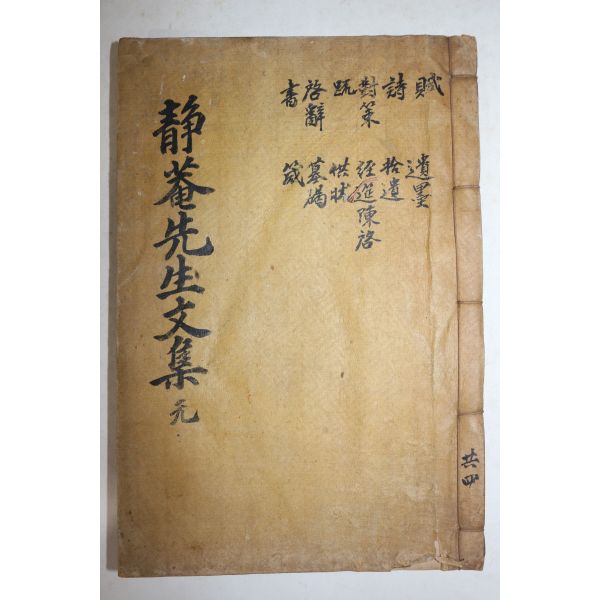 賦 遺墨
詩 拾遺
對策 經筵陳啓
疏 供狀
啓辭 墓碣
書 箴
靜菴先生文集 元
共四